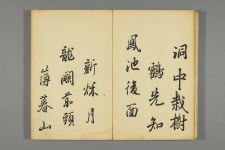 洞中栽樹
鶴先知
鳳池後面
新秋月
龍闕前頭
薄暮山